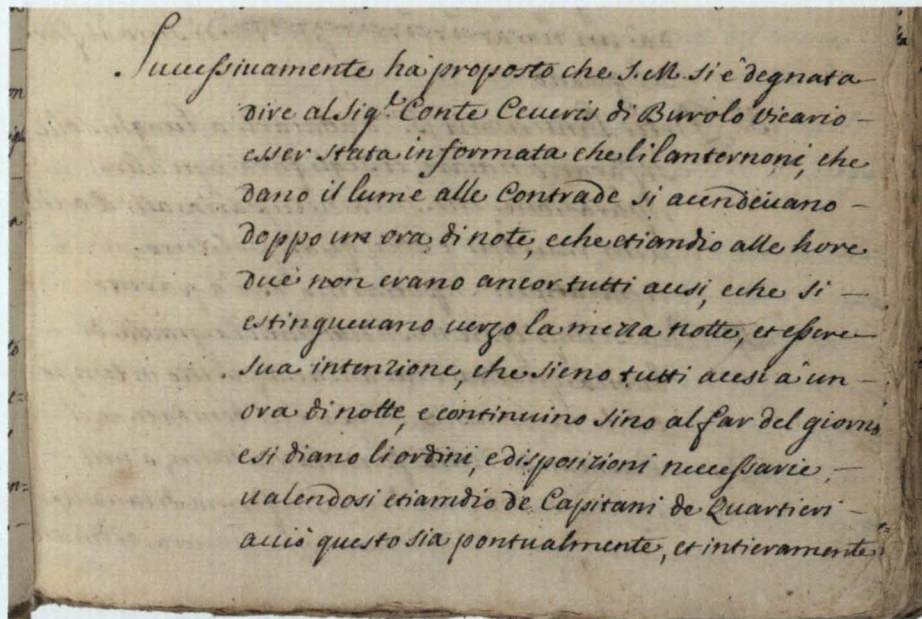 Successivamente ha proposto che S. M. si è degnata
dire al Sig.r Conte Ceveris di Burolo Vicario
esser stata informata che li lanternoni, che
dano il lume alle Contrade si acendevano
doppo un ora di note, e che etiandio alle hore
due non erano ancor tutti acesi, e che si
estinguevano verzo la mezza notte, et essere
sua intenzione, che sieno tutti acesi a un
ora di notte, e continuino sino al far del giorno
e si diano li ordini, e disposizioni necessarie,
valendosi etiamdio de Capitani de Quartieri
acciò questo sia pontualmente, et intieramente